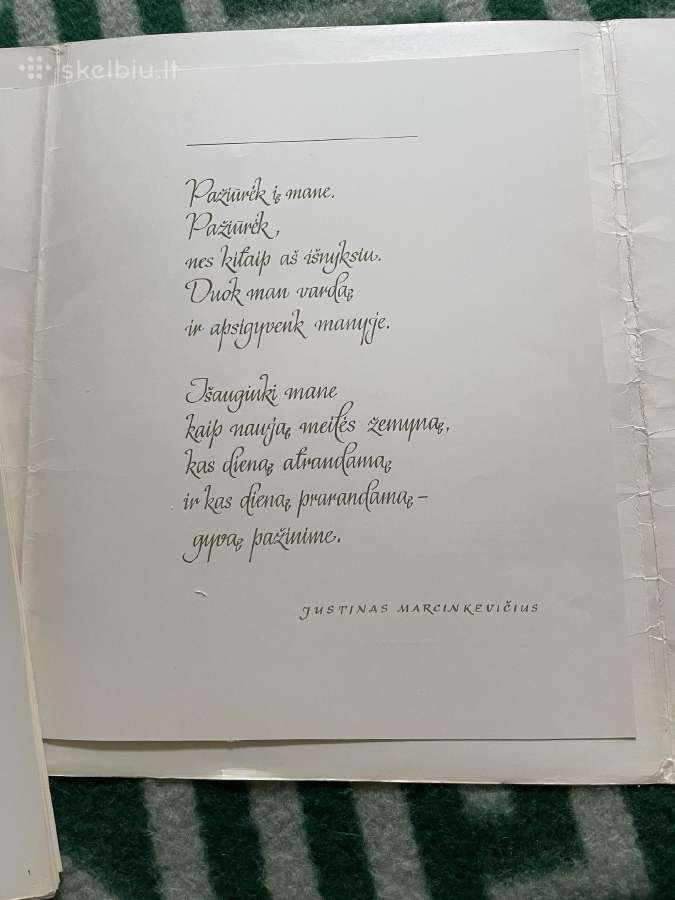 skelbiu.lt
Pažiūrėk į mane.
Pažiūrėk,
nes kitaip aš išnyksiu.
Duok man vardą
ir apsigyvenk manyje.
Išauginki mane
kaip naują meilės žemyną,
kas dieną atrandamą
ir kas dieną prarandamą –
gyvą pažinime.
JUSTINAS MARCINKEVIČIUS
1